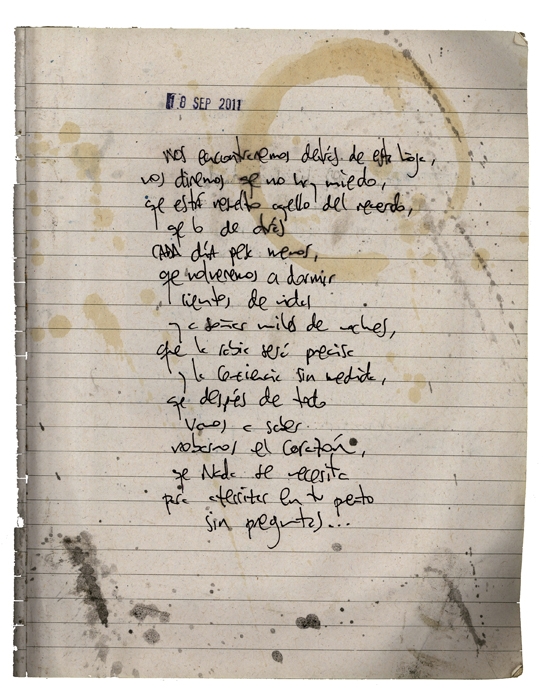 18 SEP 2011
nos encontraremos detrás de esta hoja,
nos diremos qe no hay miedo,
qe está resuelto aqello del recuerdo,
qe lo de atrás
CADA díA pesa menos,
qe volveremos a dormir
cientos de vidas
y a soñar miles de noches,
que la rabia será precisa
y la conciencia sin medida,
qe después de todo
vamos a saber
robarnos el corazón,
qe Nada se necesita
para aterrizar en tu pecho
sin preguntas...